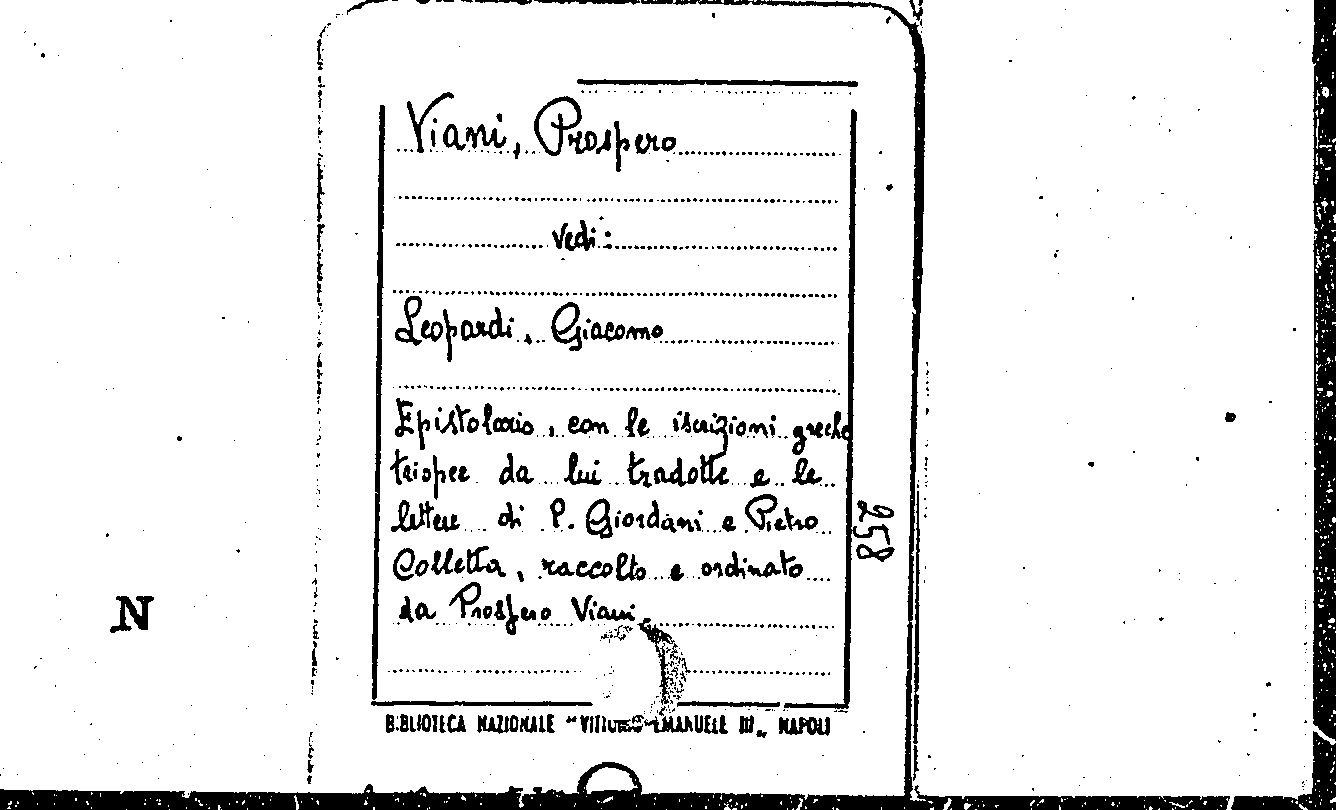 Viani, Prospero
Vedi:
Leopardi, Giacomo
Epistolario, con le iscrizioni greche
triopee da lui tradotte e le
lettere di P. Giordani e Pietro
Colletta, raccolto e ordinato
da Prospero Viani.
258
N
BIBLIOTECA NAZIONALE "VITTORIO EMANUELE III" NAPOLI